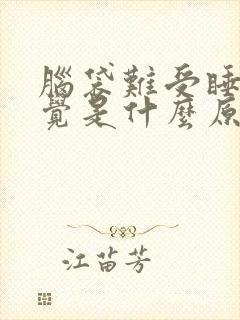 腦袋難受睡
覺是什麼原
江苗芳